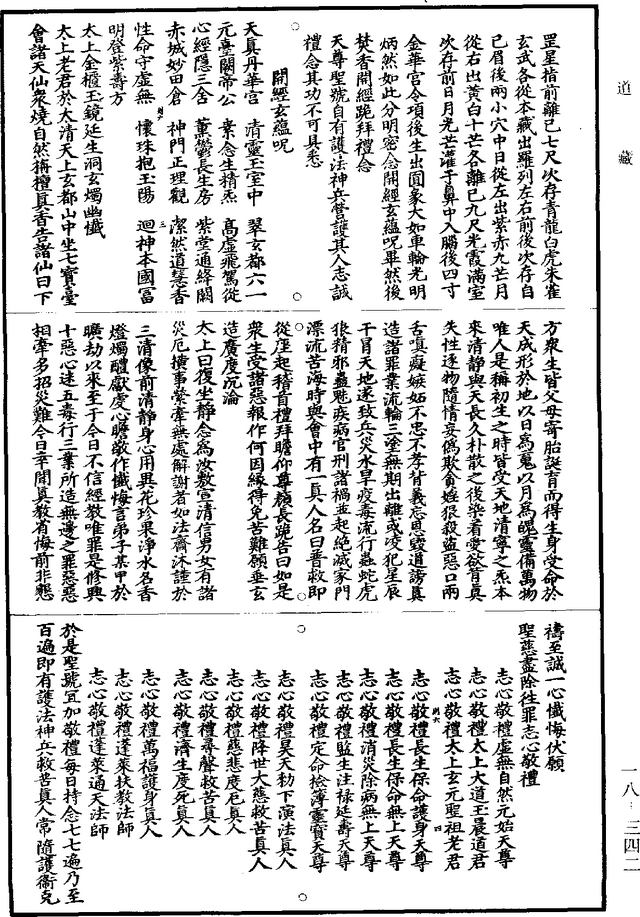 道藏
罡星指前離己七尺次存青龍白虎朱雀
玄武各從本藏出羅列左右前後次存自
己眉後兩小穴中日從左出紫赤九芒月
從右出黃白十芒各離己九尺光霞滿室
次存前日月光芒灌于鼻中入腦後四寸
金華宮令項後生出圓象大如車輪光明
炳然如此分明密念開經玄蘊呪畢然後
焚香開經跪拜禮念
天尊聖號自有護法神兵營護其人志誠
禮念其功不可具悉
開經玄蘊呪
天真丹華宮　清靈玉室中　翠玄都六一
元臺關帝公　素念生精炁　高虛飛駕從
心經隱三舍　董鬱長生房　紫堂通絳闕
赤城妙田倉　神門正理觀　潔然道慧香
性命守虛無　懷珠抱玉陽　迴神本國冨
明登紫壽方
太上金櫃玉鏡延生洞玄燭幽懺
太上老君於太清天上玄都山中坐七寶臺
會諸天仙衆燒自然旃檀真香告諸仙曰下
方衆生皆父母寄胎誕育而得生身受命於
天成形於地以日爲䰟以月爲魄靈備萬物
唯人是稱初生之時皆受天地清寧之炁本
來清静與天長久朴散之後染着愛欲背真
失性逐物隨情妄僞欺貪婬狠殺盜惡口兩
舌嗔癡嫉妬不忠不孝背義忘恩毀道謗真
造諸罪業流輪三塗無期出離或凌犯星辰
干冒天地遂致兵災水旱疫毒流行蟲蛇虎
狼精邪蠱魅疾病官刑諸禍並起絶滅家門
漂流苦海時與會中有一真人名曰普救即
從座起稽首禮拜瞻仰尊顔長跪告曰如是
衆生受諸惡報作何因縁得免苦難願垂玄
造廣度沉淪
太上曰復坐静念爲汝敷宣清信男女有諸
災厄横事縈牽無處解謝者如法齋沐謹於
三清像前清静身心用異花珍果浄水名香
燈燭醴獻虔心瞻敬作懺悔言弟子某甲於
曠劫以來至于今日不信經教唯罪是修興
十惡心迷五毒行三業所造無邊之罪惡惡
相牽多招災難今日幸聞真教省悔前非懇
禱至誠一心懺悔伏願
聖慈盡除徃罪志心敬禮
志心敬禮虛無自然元始天尊
志心敬禮太上大道玉晨道君
志心敬禮太上玄元聖祖老君
志心敬禮長生保命護身天尊
志心敬禮長生保命無上天尊
志心敬禮消災除病無上天尊
志心敬禮監生注禄延壽天尊
志心敬禮定命檢簿靈寶天尊
志心敬禮昊天勑下演法真人
志心敬禮降世大慈救苦真人
志心敬禮慈悲度厄真人
志心敬禮尋聲救苦真人
志心敬禮濟生度死真人
志心敬禮萬福護身真人
志心敬禮蓬萊扶教法師
志心敬禮蓬萊通天法師
於是聖號冝加敬禮每日持念七七遍乃至
百遍即有護法神兵救苦真人常隨護衞克
一八：三四二